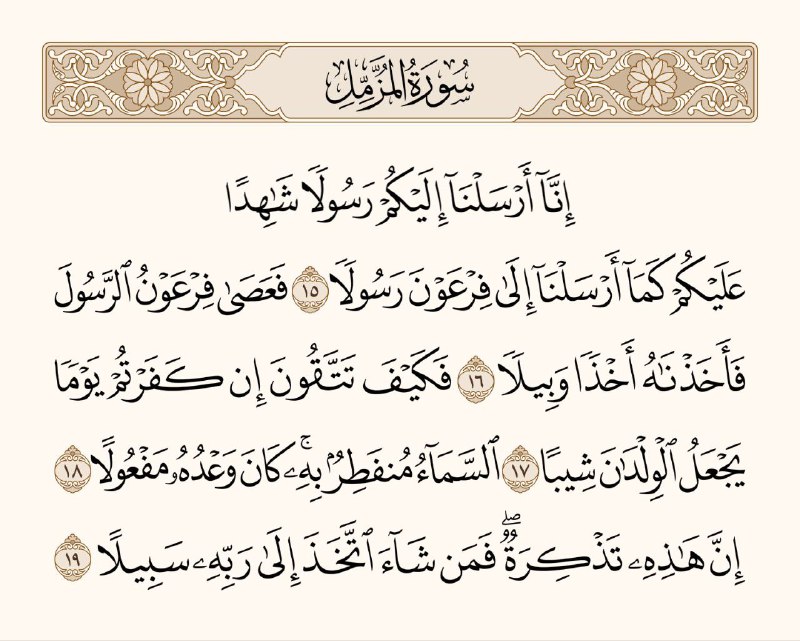 سُورَةُ المُزَّمِّلِ
إِنَّآ أَرْسَلْنَآ إِلَيْكُمْ رَسُولًا شَٰهِدًا
عَلَيْكُمْ كَمَآ أَرْسَلْنَآ إِلَىٰ فِرْعَوْنَ رَسُولًا ١٥ فَعَصَىٰ فِرْعَوْنُ ٱلرَّسُولَ
فَأَخَذْنَٰهُ أَخْذًا وَبِيلًا ١٦ فَكَيْفَ تَتَّقُونَ إِن كَفَرْتُمْ يَوْمًا
يَجْعَلُ ٱلْوِلْدَٰنَ شِيبًا ١٧ ٱلسَّمَآءُ مُنفَطِرٌۢ بِهِۦۚ كَانَ وَعْدُهُۥ مَفْعُولًا ١٨
إِنَّ هَٰذِهِۦ تَذْكِرَةٌۖ فَمَن شَآءَ ٱتَّخَذَ إِلَىٰ رَبِّهِۦ سَبِيلًا ١٩